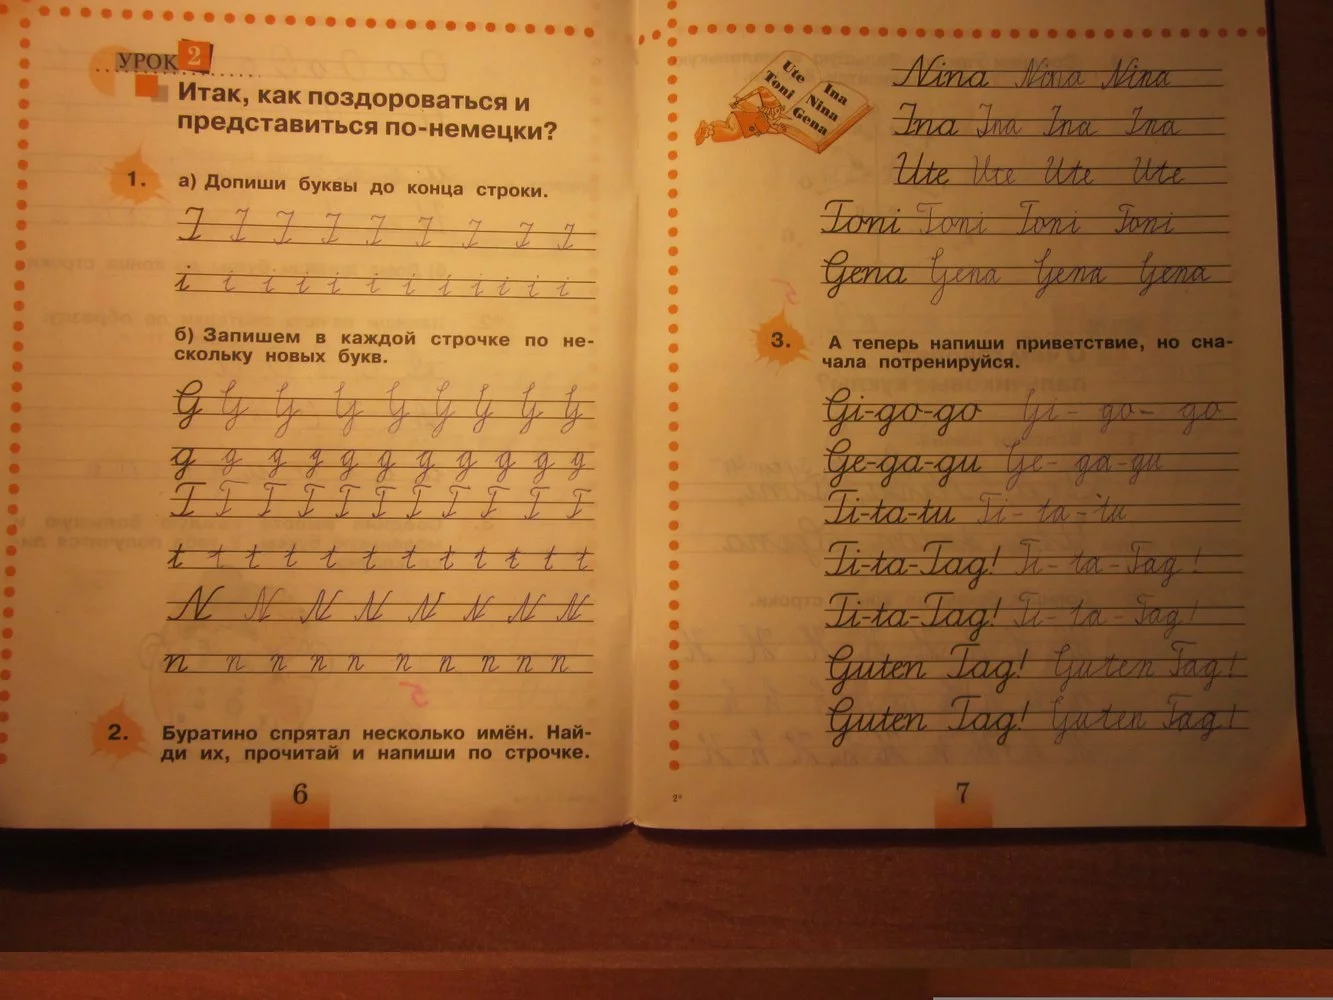 УРОК 2
Итак, как поздороваться и
представиться по-немецки?
1. а) Допиши буквы до конца строки.
I I I I I I I I I
i i i i i i i i i i i
б) Запишем в каждой строчке по не-
скольку новых букв.
G G G G G G G G G
g g g g g g g g g g g
T T T T T T T T T T
t t t t t t t t t t t t
N N N N N N N N
n n n n n n n n n n
5
2. Буратино спрятал несколько имён. Най-
ди их, прочитай и напиши по строчке.
6
Ute
Toni
Ina
Nina
Gena
Nina Nina Nina
Ina Ina Ina Ina
Ute Ute Ute Ute
Toni Toni Toni Toni
Gena Gena Gena Gena
3. А теперь напиши приветствие, но сна-
чала потренируйся.
Gi-go-go Gi- go- go
Ge-ga-gu Ge- ga-gu
Ti-ta-tu Ti- ta-tu
Ti-ta-Tag! Ti- ta-Tag!
Ti-ta-Tag! Ti- ta-Tag!
Guten Tag! Guten Tag!
Guten Tag! Guten Tag!
2*
7